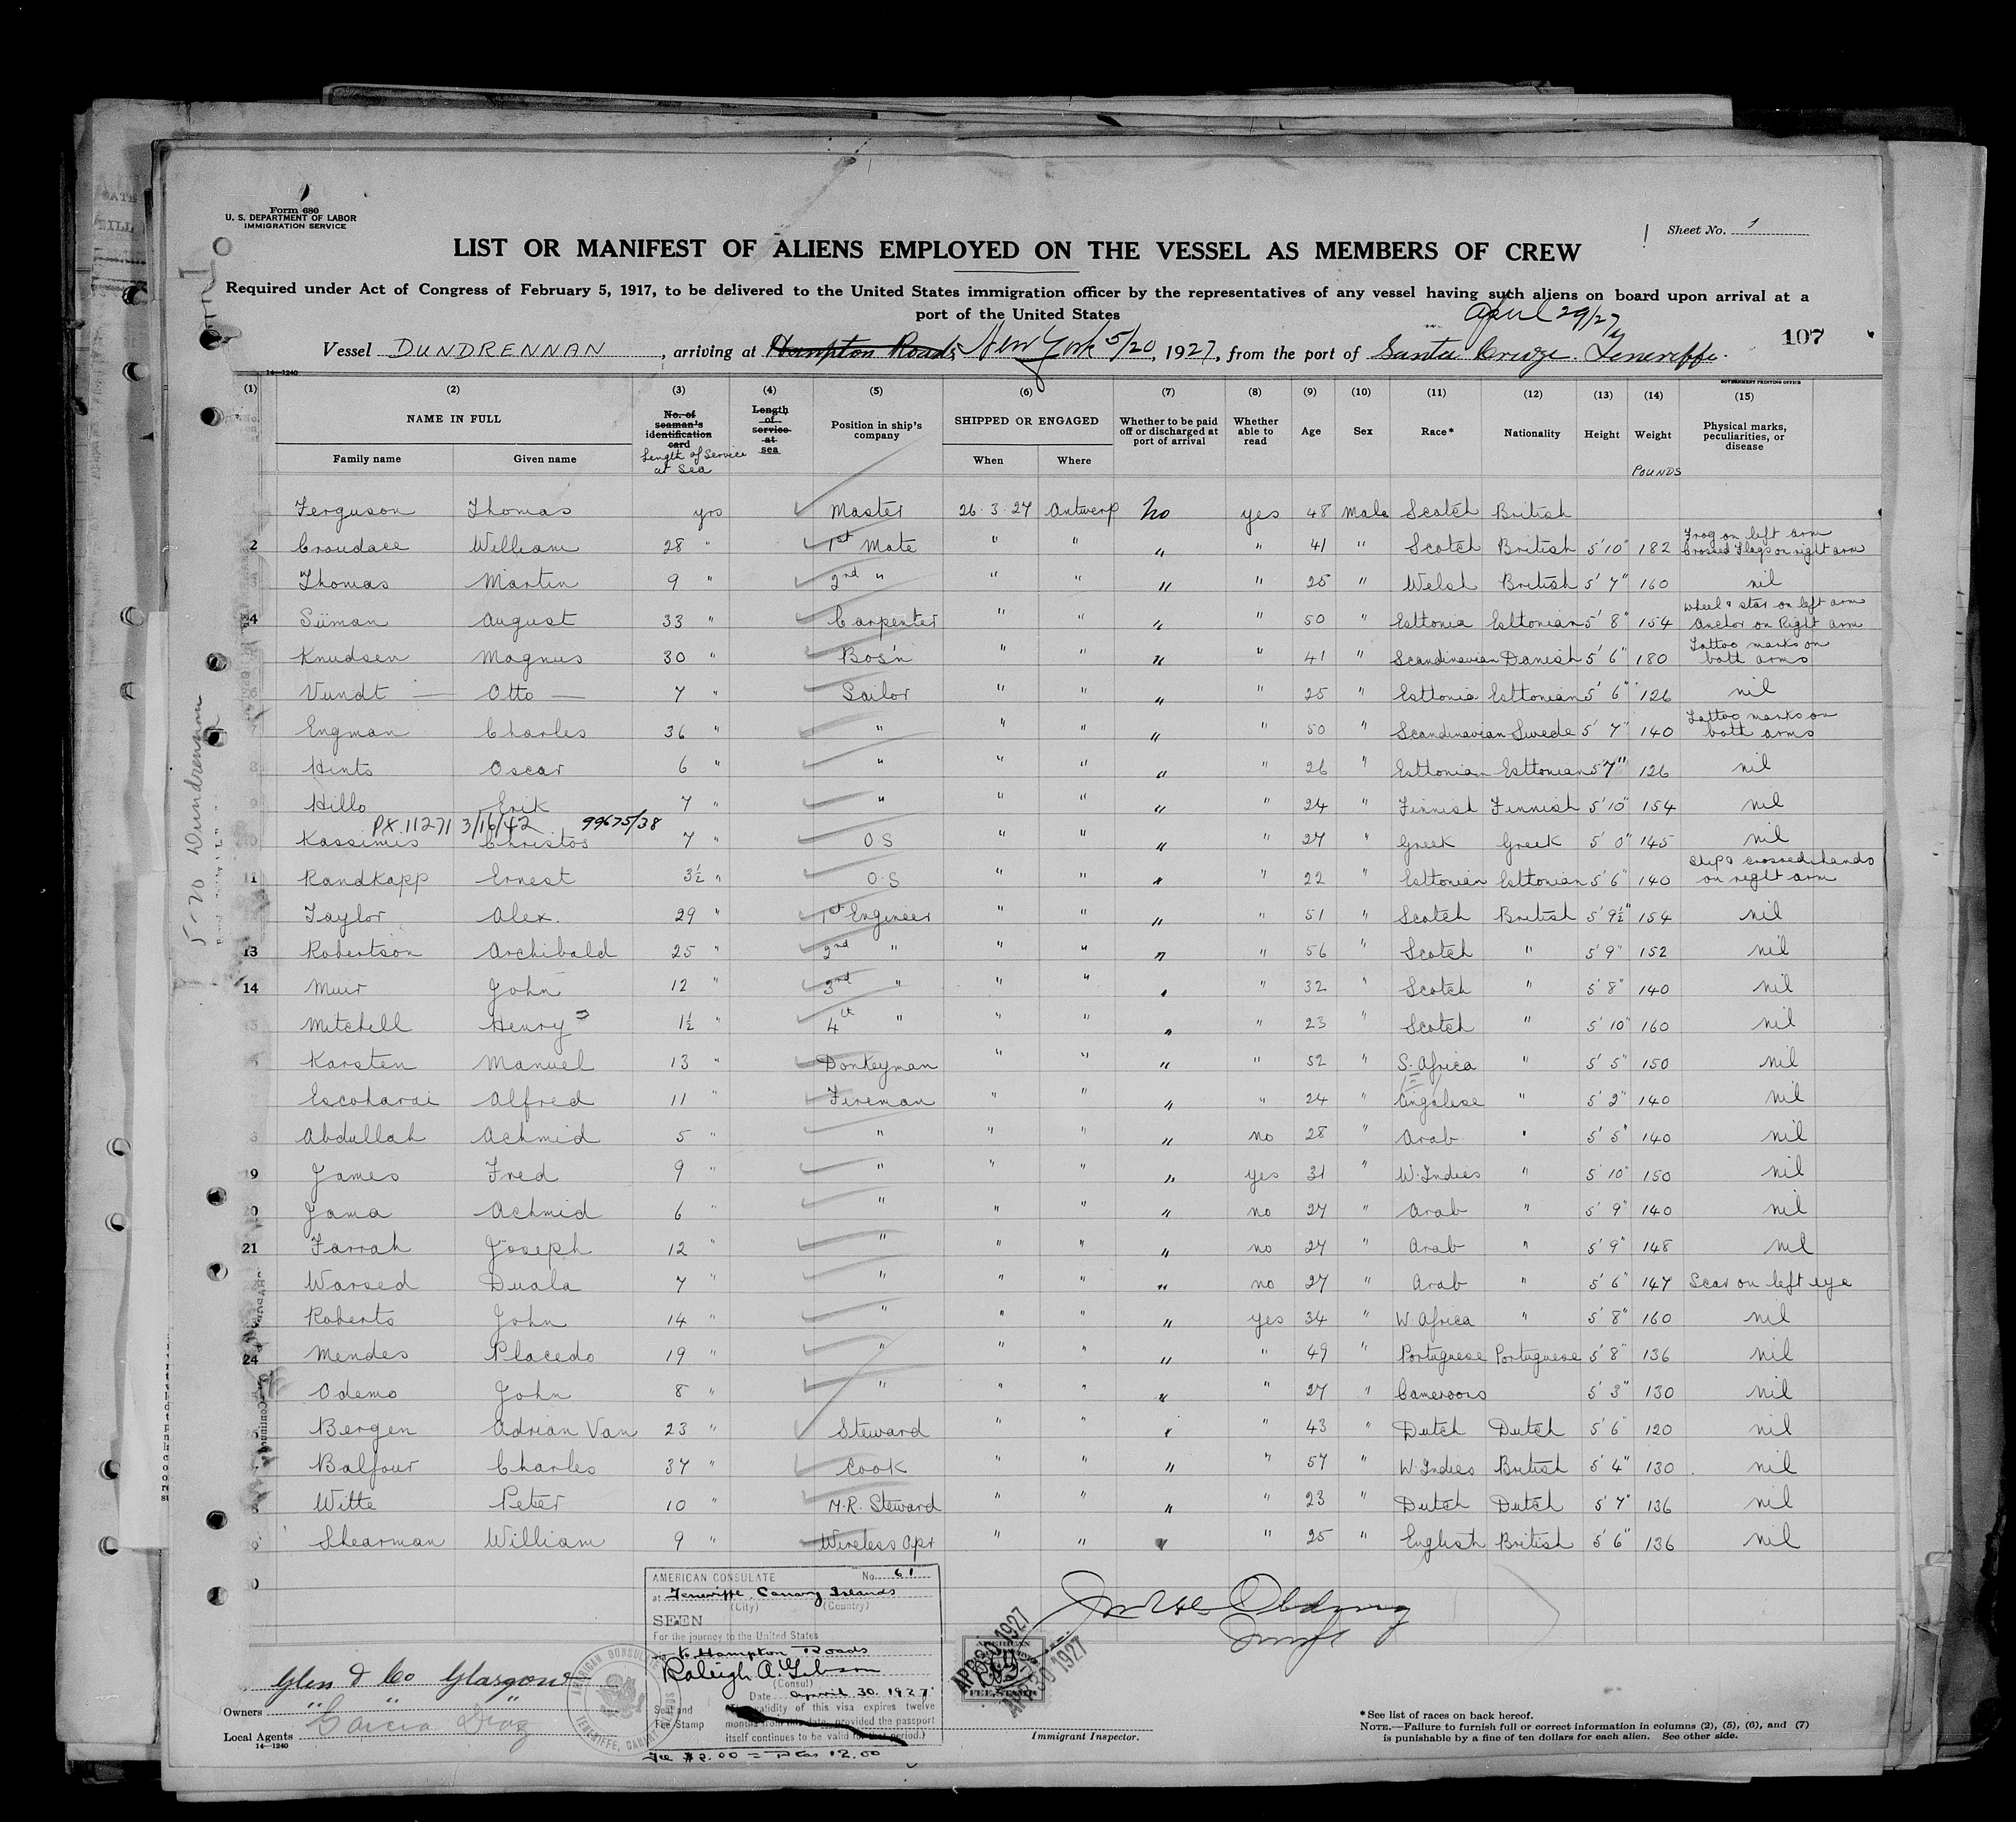 Form 680
U. S. DEPARTMENT OF LABOR
IMMIGRATION SERVICE
Sheet No. 1
LIST OR MANIFEST OF ALIENS EMPLOYED ON THE VESSEL AS MEMBERS OF CREW
Required under Act of Congress of February 5, 1917, to be delivered to the United States immigration officer by the representatives of any vessel having such aliens on board upon arrival at a
port of the United States
April 29/27
107
Vessel DUNDRENNAN, arriving at Hampton Roads New York 5/20, 1927, from the port of Santa Cruze. Teneriffe.
14—1240
GOVERNMENT PRINTING OFFICE
(1) (2) (3) (4) (5) (6) (7) (8) (9) (10) (11) (12) (13) (14) (15)
NAME IN FULL No. of seaman's identification card Length of service at sea Position in ship's company SHIPPED OR ENGAGED Whether to be paid off or discharged at port of arrival Whether able to read Age Sex Race* Nationality Height Weight Physical marks, peculiarities, or disease
Family name Given name Length of Service at Sea When Where POUNDS
Ferguson Thomas yrs Master 26.3.27 Antwerp No yes 48 Male Scotch British
2 Croudace William 28 " 1st Mate " " " " 41 " Scotch British 5'10" 182 Frog on left arm Crossed Flags on right arm
Thomas Martin 9 " 2nd " " " " " 25 " Welsh British 5'7" 160 nil
4 Siiman August 33 " Carpenter " " " " 50 " Esttonia Esttonian 5'8" 154 Wheel & star on left arm Anchor on Right arm
Knudsen Magnus 30 " Bos'n " " " " 41 " Scandinavian Danish 5'6" 180 Tattoo marks on both arms
6 Vundt — Otto — 7 " Sailor " " " " 25 " Esttonia Esttonian 5'6" 126 nil
7 Engman Charles 36 " " " " " " 50 " Scandinavian Swede 5'7" 140 Tattoo marks on both arms
8 Hints Oscar 6 " " " " " " 26 " Esttonian Esttonian 5'7" 126 nil
9 Hillo Erik 7 " " " " " " 24 " Finnish Finnish 5'10" 154 nil
PX.11271 3/16/42 99675/38
10 Kassimis Christos 7 " O S " " " " 27 " Greek Greek 5'0" 145 nil
11 Randkapp Ernest 3½ " O.S " " " " 22 " Esttonian Esttonian 5'6" 140 Ship & crossed hands on right arm
Taylor Alex. 29 " 1st Engineer " " " " 51 " Scotch British 5'9½" 154 nil
13 Robertson Archibald 25 " 2nd " " " " " 56 " Scotch " 5'9" 152 nil
14 Muir John 12 " 3rd " " " " " 32 " Scotch " 5'8" 140 nil
15 Mitchell Henry 1½ " 4th " " " " " 23 " Scotch " 5'10" 160 nil
Karsten Manuel 13 " Donkeyman " " " " 52 " S. Africa " 5'5" 150 nil
Escoharai Alfred 11 " Fireman " " " " 24 " Cingalese " 5'2" 140 nil
Abdullah Achmid 5 " " " " " no 28 " Arab " 5'5" 140 nil
19 James Fred 9 " " " " " yes 31 " W. Indies " 5'10" 150 nil
20 Jama Achmid 6 " " " " " no 27 " Arab " 5'9" 140 nil
21 Farrah Joseph 12 " " " " " no 27 " Arab " 5'9" 148 nil
Warsed Duala 7 " " " " " no 27 " Arab " 5'6" 147 Scar on left eye
Roberts John 14 " " " " " yes 34 " W. Africa " 5'8" 160 nil
24 Mendes Placedo 19 " " " " " " 49 " Portuguese Portuguese 5'8" 136 nil
Odemo John 8 " " " " " " 27 " Cameroons 5'3" 130 nil
Bergen Adrian Van 23 " Steward " " " " 43 " Dutch Dutch 5'6 120 nil
Balfour Charles 37 " Cook " " " " 57 " W. Indies British 5'4" 130 nil
Witte Peter 10 " M.R. Steward " " " " 23 " Dutch Dutch 5'7" 136 nil
Shearman William 9 " Wireless Opr " " " " 25 " English British 5'6" 136 nil
30
5-20 Dundrennan
AMERICAN CONSULATE No. 61
at Teneriffe, Canary Islands
(City) (Country)
SEEN
For the journey to the United States
to Hampton Roads
Raleigh A. Gibson
(Consul)
Date April 30. 1927
Seal and Fee Stamp
(The validity of this visa expires twelve
months from this date, provided the passport
itself continues to be valid for that period.)
Fee $2.00 = Ptas 12.00
AMERICAN
FEE STAMP
APR 30 1927
APR 30 1927
AMERICAN CONSULATE
Glen & Co Glasgow
Owners " " "
Local Agents Garcia Diaz
14—1240
Immigrant Inspector.
*See list of races on back hereof.
NOTE.—Failure to furnish full or correct information in columns (2), (5), (6), and (7)
is punishable by a fine of ten dollars for each alien. See other side.